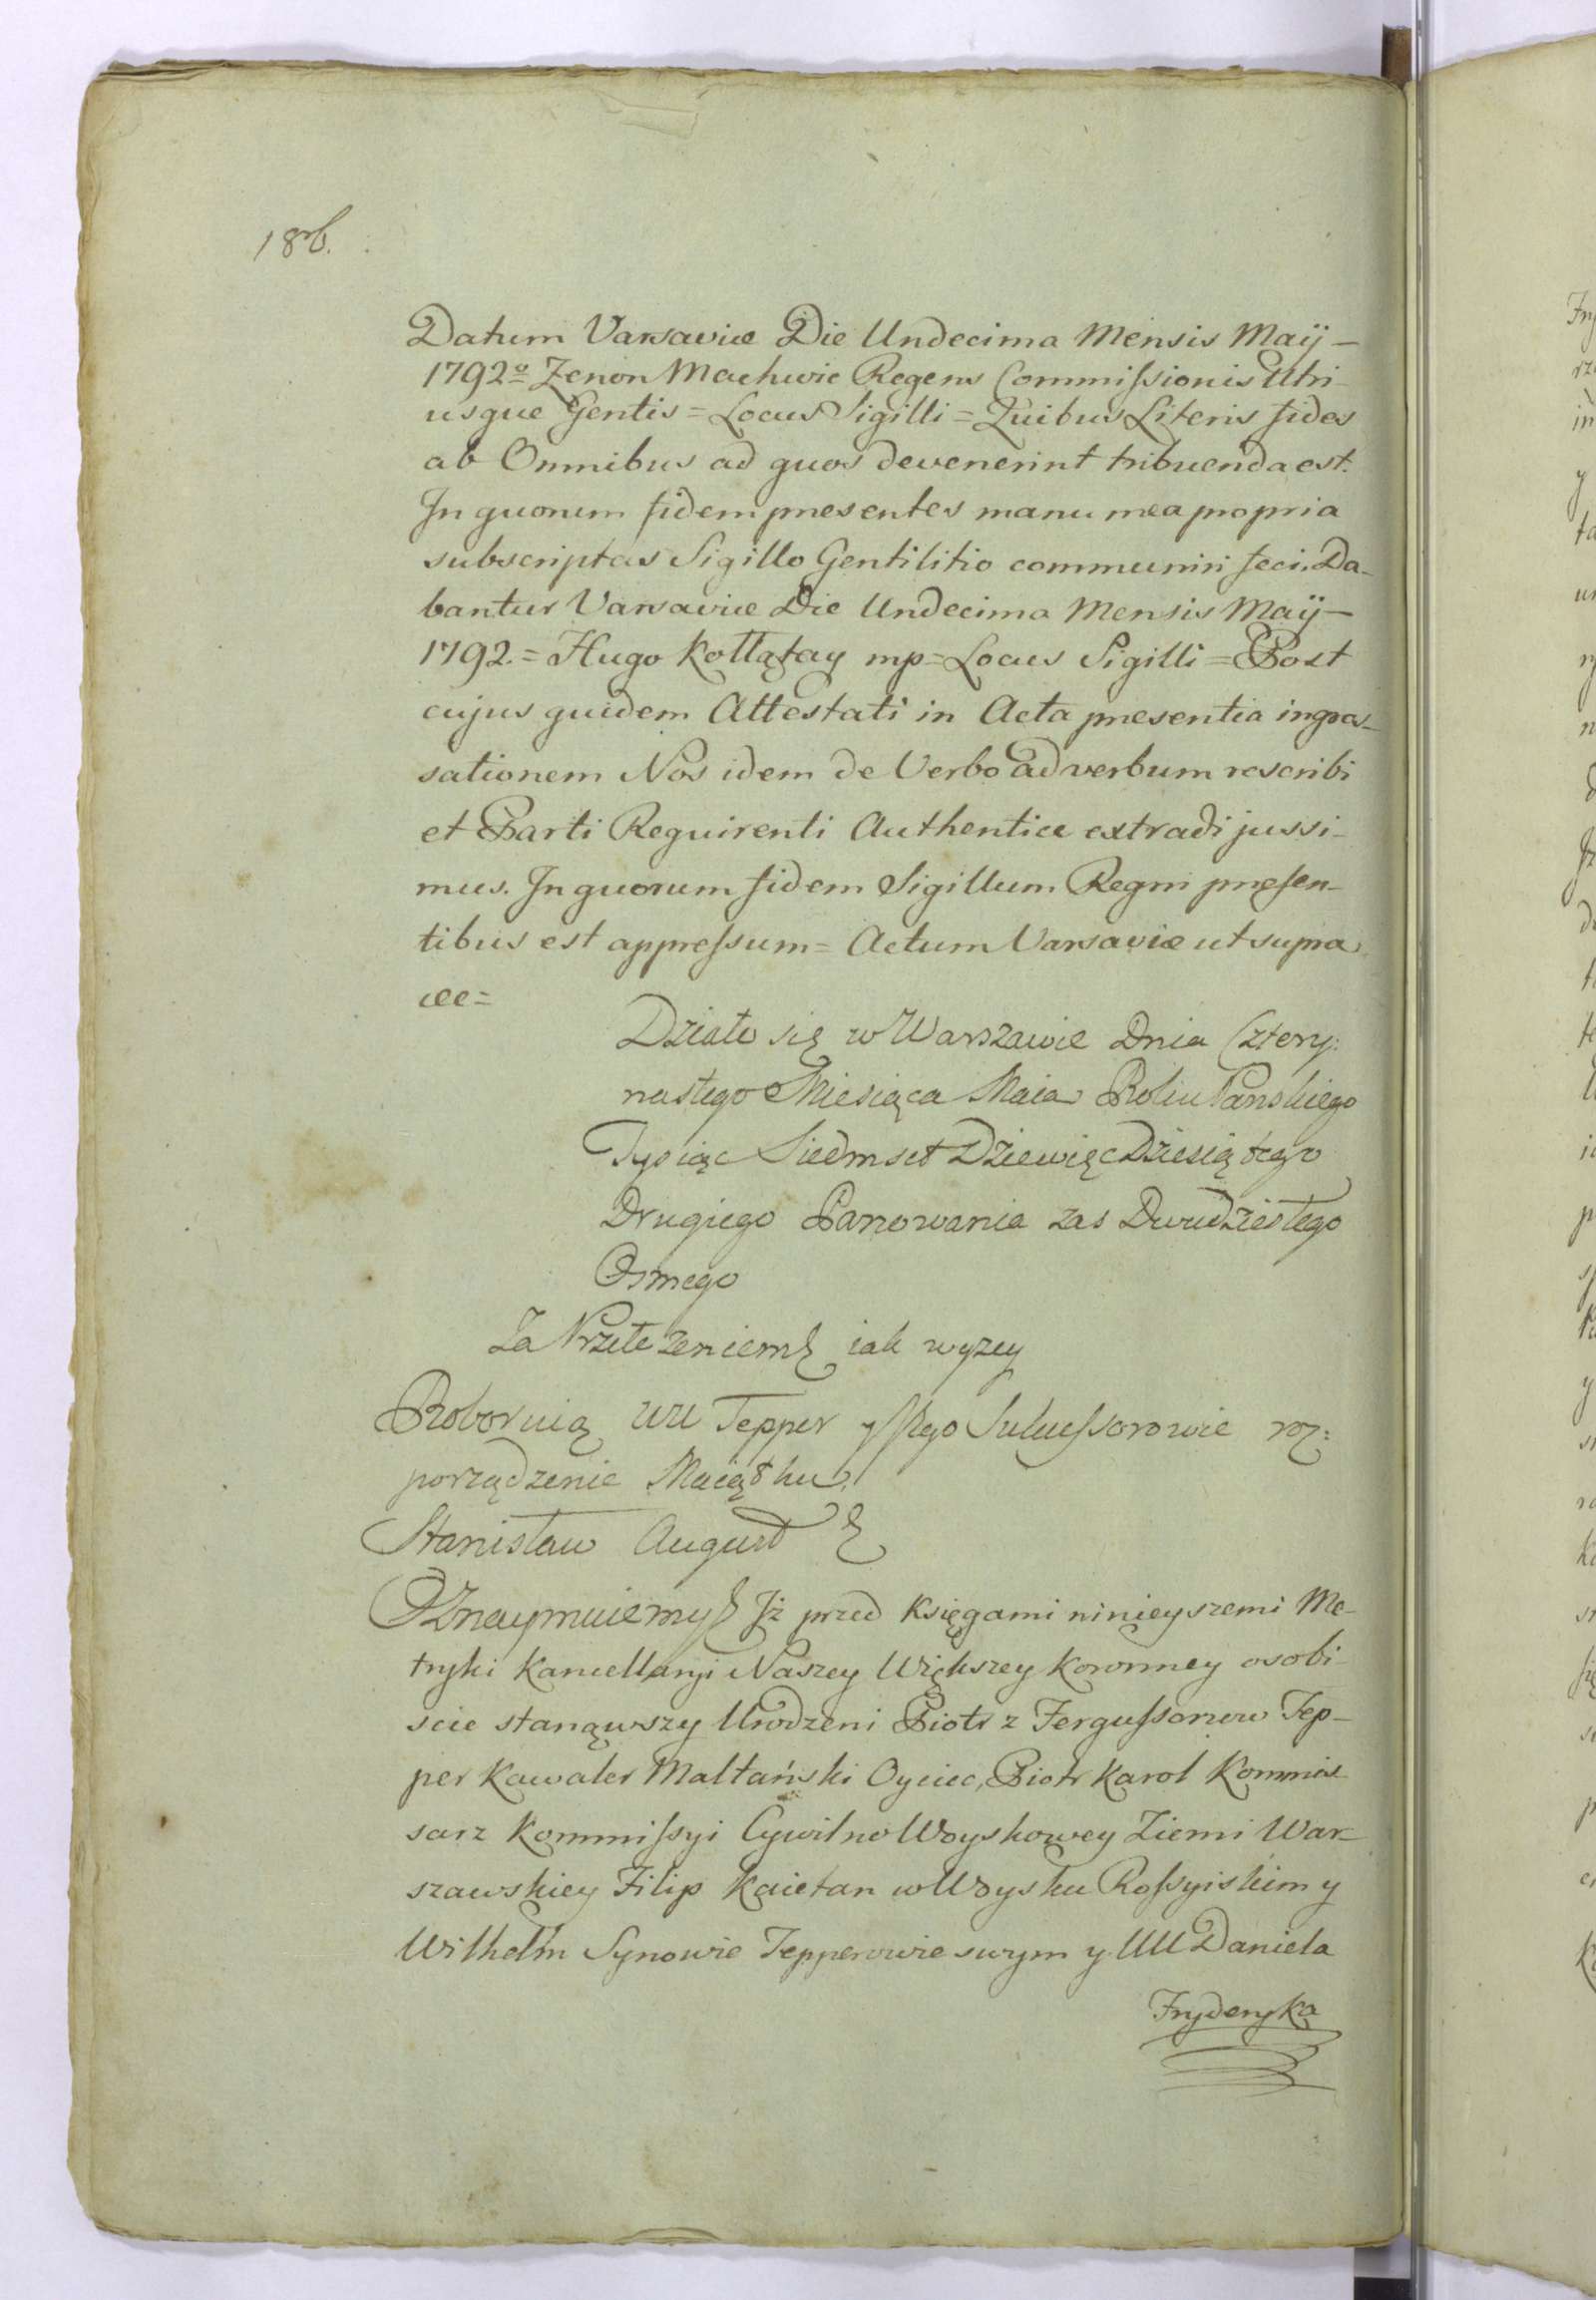 186.
Datum Varsaviæ Die Undecima Mensis Maij –
1792º Zenon Machwic Regens Commissionis Utri
usque Gentis = Locus Sigilli = Quibus Literis fides
ab Omnibus ad quos devenerint tribuenda est.
In quorum fidem presentes manu mea propria
subscriptas Sigillo Gentilitio communiri feci. Da–
bantur Varsaviæ Die Undecima Mensis Maij –
1792. = Hugo Kołłątay mp = Locus Sigilli = Post
cujus quidem Attestati in Acta presentia ingros–
sationem Nos idem de Verbo ad verbum rescribi
et Parti Requirenti Authentice extradi jussi–
mus. In quorum fidem Sigillum Regni presen–
tibus est appressum = Actum Varsaviæ ut supra
Działo się w Warszawie Dnia Cztery:
nastego Miesiąca Maia Roku Pańskiego
Tysiąc Siedmset Dziewięcdziesiątego
Drugiego Panowania zas Dwudziestego
Osmego
Za Przełożeniem iak wyzey
Roboruią UU Tepper y Jego Sukcessorowie roz:
porządzenie Maiątku
Stanisław August
Oznaymuiemy Iż przed Księgami ninieyszemi Me–
tryki Kancellaryi Naszey Większey Koronney osobi–
scie stanąwszy Urodzeni Piotr z Fergussonow Tep–
per Kawaler Maltański Oyciec, Piotr Karol Kommis–
sarz Kommissyi Cywilno Woyskowey Ziemi War–
szawskiey Filip Kaietan w Woysku Rossyiskim y
Wilhelm Synowie Tepperowie swym y UU Daniela
Fryderyka